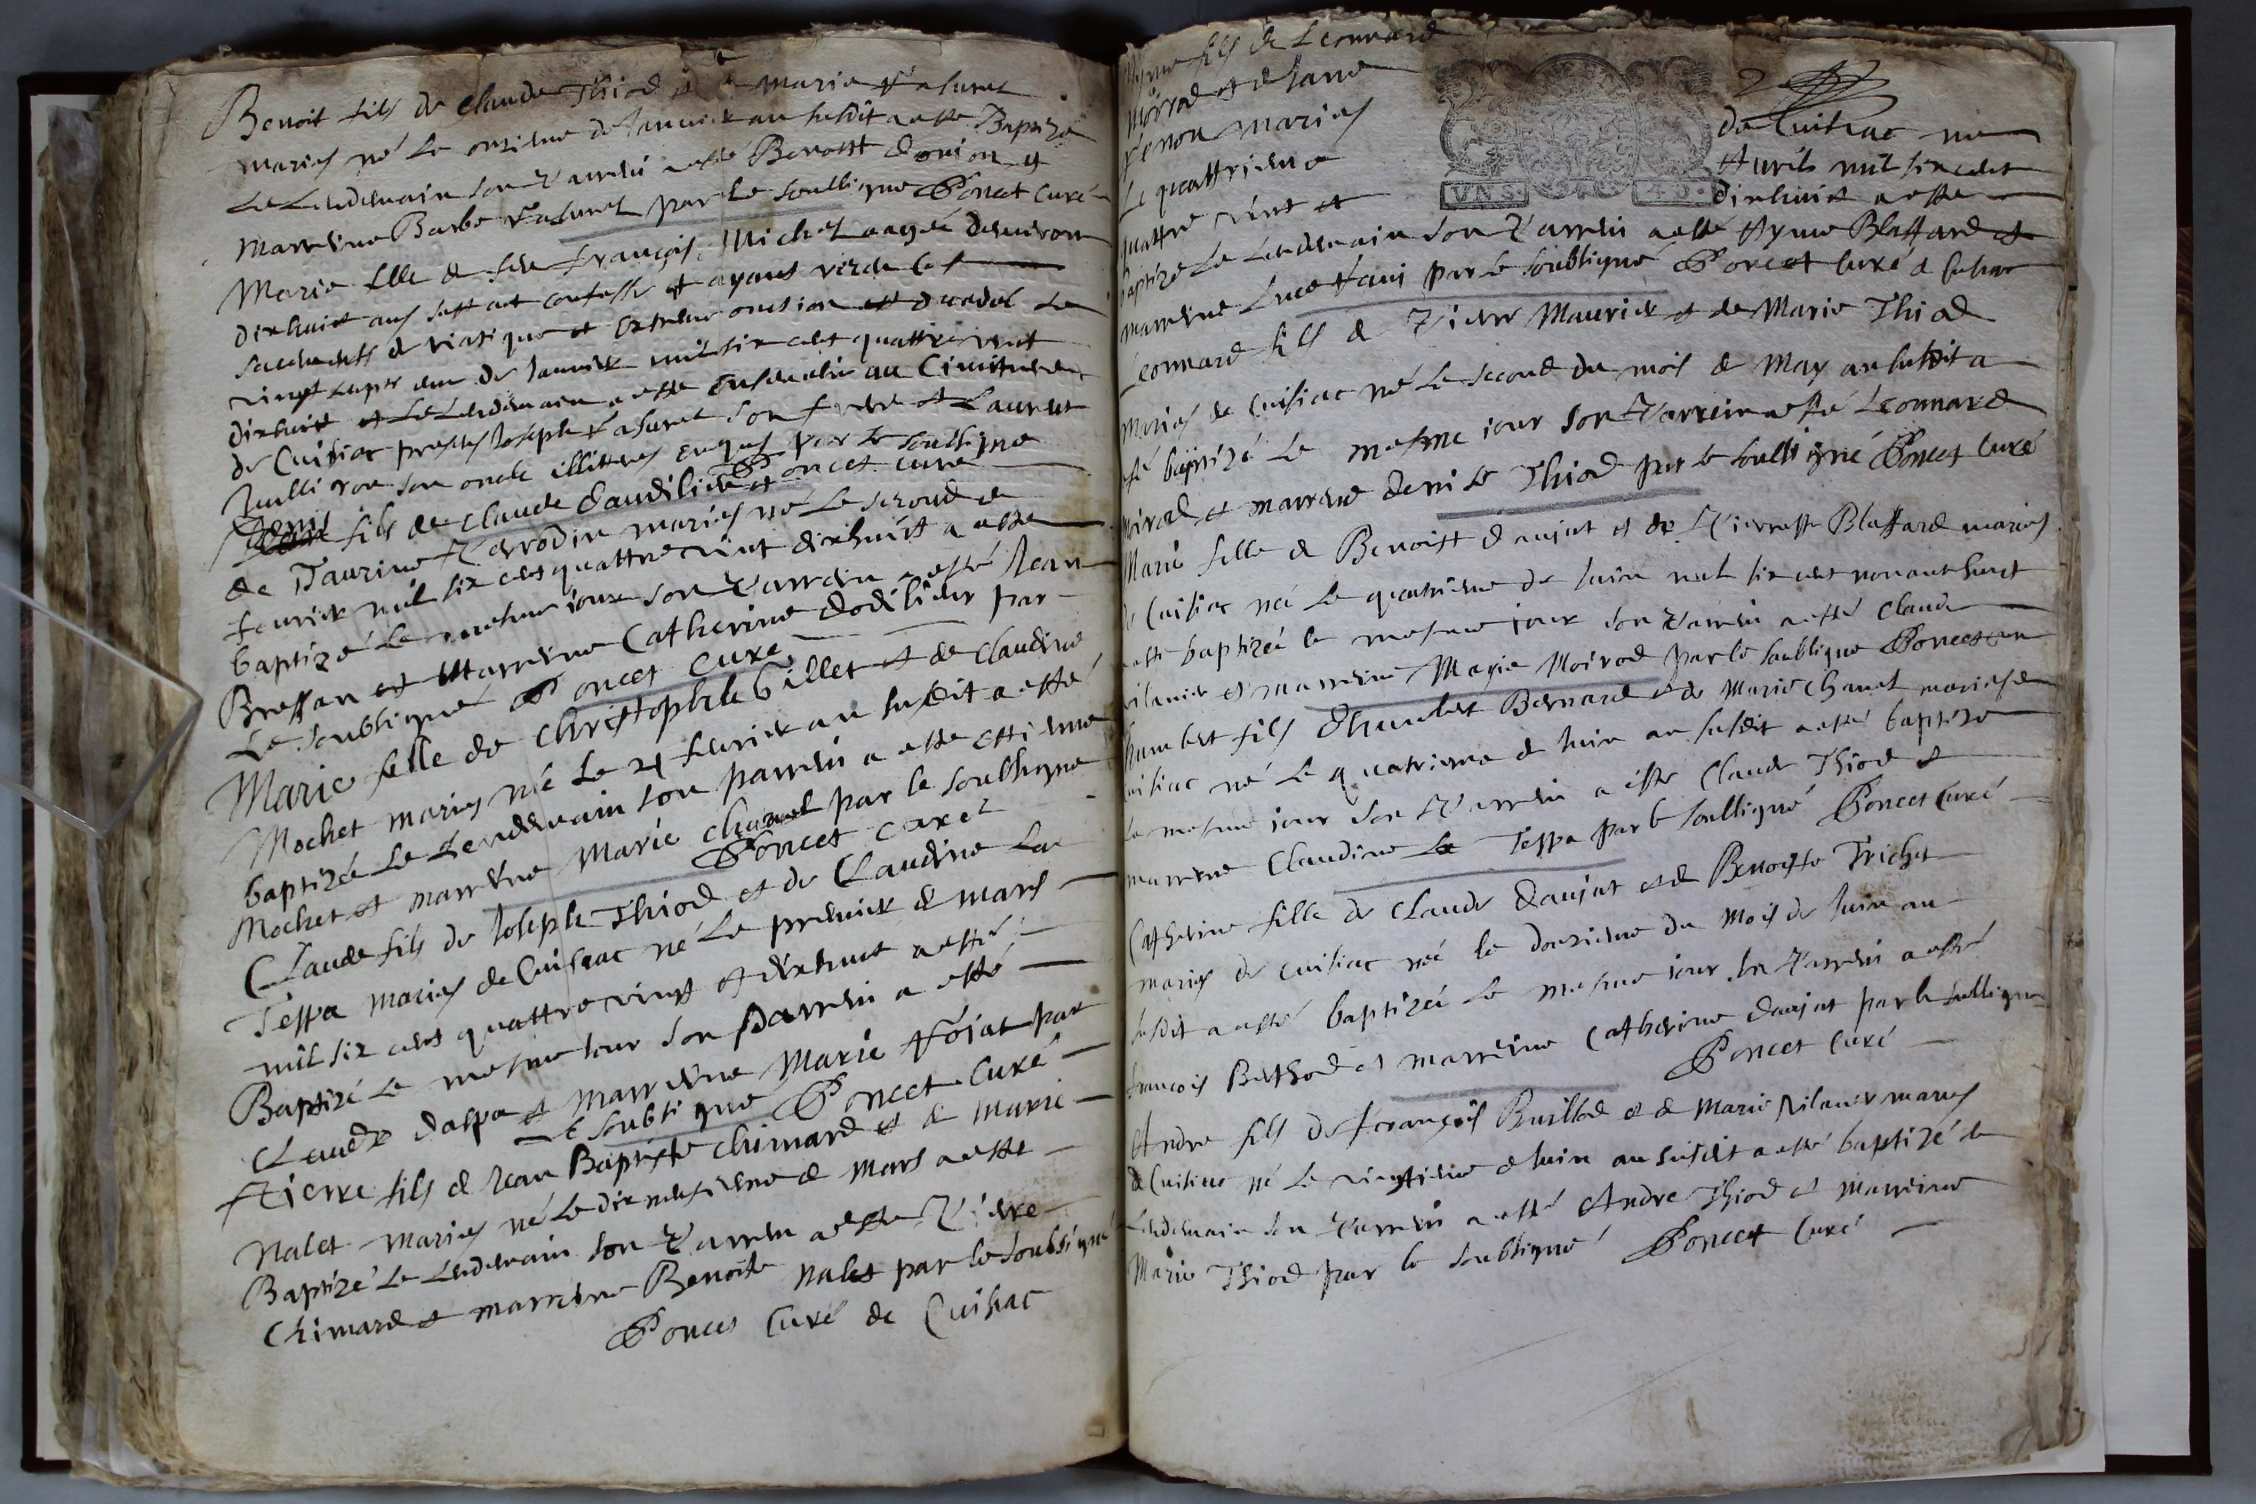 Benoit fils de Claude Thiod et de Marie Vasuret
maries né le onzieme de Januier an susdit a esté Baptizé
Le Lendemain son Parrein a esté Benoist donion et
Marrеine Barbe Vasuret par le soubsigné Poncet Curé
Marie fille de feu François Michel aagée denuiron
dixhuict ans sestant confessée et ayant receu les
sacements de viatique et extreme onction est decedee le
vingt deux de Januier mil six cent quattre vint
dixhuict et le Lendemain a esté enseuelie au Cimitiere
de Cuisiac presents Joseph Vasuret son frere et Laurent
son oncle illitteres enquis par le soubsigné
Poncet curé
Denis fils de Claude daudilier et
de Taurine Perrodin maries né le second de
feurier mil six cens quattre vint dixhuict a esté
baptizé le mesme iour son Parrein a esté Jean
Bressan et Marreine Catherine dodilier par
Le soubsigné Poncet curé
Marie fille de Christophle Gillet et de Claudine
Mochet maries née le 21 feurier an susdit a esté
baptizée le Lendemain son parrein a esté Estienne
Mochet et marreine Marie chanel par le soubsigné
Poncet curé
Claude fils de Joseph Thiod et de Claudine La
Teppa maries de Cuisiac né le premier de mars
mil six cens quattre vingt et dixhuict a esté
Baptizé le mesme iour son parrein a esté
Claude dalpa et marreine Marie Foiat par
le soubsigné Poncet Curé
Pierre fils de Jean Baptiste Chimard et de Marie
Nalet maries né le dix neufieme de mars a esté
Baptizé le Lendemain son Parrein a esté Pierre
Chimard et marreine Benoite nalet par le soubsigné
Poncet Curé de Cuisiac
Ayme fils de Leonnard
Moirod et de Jane
Penon maries
de Cuisiac né
Le quattrieme
Auril mil six cent
quattre vint et
dixhuict a esté
VN S. 4 D.
2
baptizé le Lendemain son Parrein a esté Ayme Blassard et
marreine Luce Fani par le soubsigné Poncet Curé de Cuisiac
Leonnard fils de Pierre Maurier et de Marie Thiod
maries de Cuisiac né le second du mois de May an susdit a
esté baptizé le mesme iour son Parrein a esté Leonnard
Moirod et marreine denise Thiod par le soubsigné Poncet Curé
Marie fille de Benoist daujat et de Pierrette Blassard maries
de Cuisiac née le quatrieme de Juin mil six cent nonant huict
a esté baptizée le mesme iour son Parrein a esté Claude
vilanier et marreine Marie Moirod par le soubsigné Poncet
humbert fils dhumbert Bernard et de Marie Chanel maries de
Cuisiac né le quatrieme de Juin an susdit a esté baptizé
le mesme iour son Parrein a esté Claude Thiod et
marreine Claudine la Teppa par le soubsigné Poncet Curé
Catherine fille de Claude daujat et de Benoiste Trichet
maries de Cuisiac née le douzieme du Mois de Juin an
susdit a esté baptizée le mesme iour son Parrein a esté
François Berthod et marreine Catherine daujat par le soubsigné
Poncet Curé
Andre fils de François Buillod et de Marie vilanier maries
de Cuisiac né le vingtieme de Juin an susdit a esté baptizé le
Lendemain son Parrein a esté Andre Thiod et marreine
Marie Thiod par le soubsigné Poncet Curé